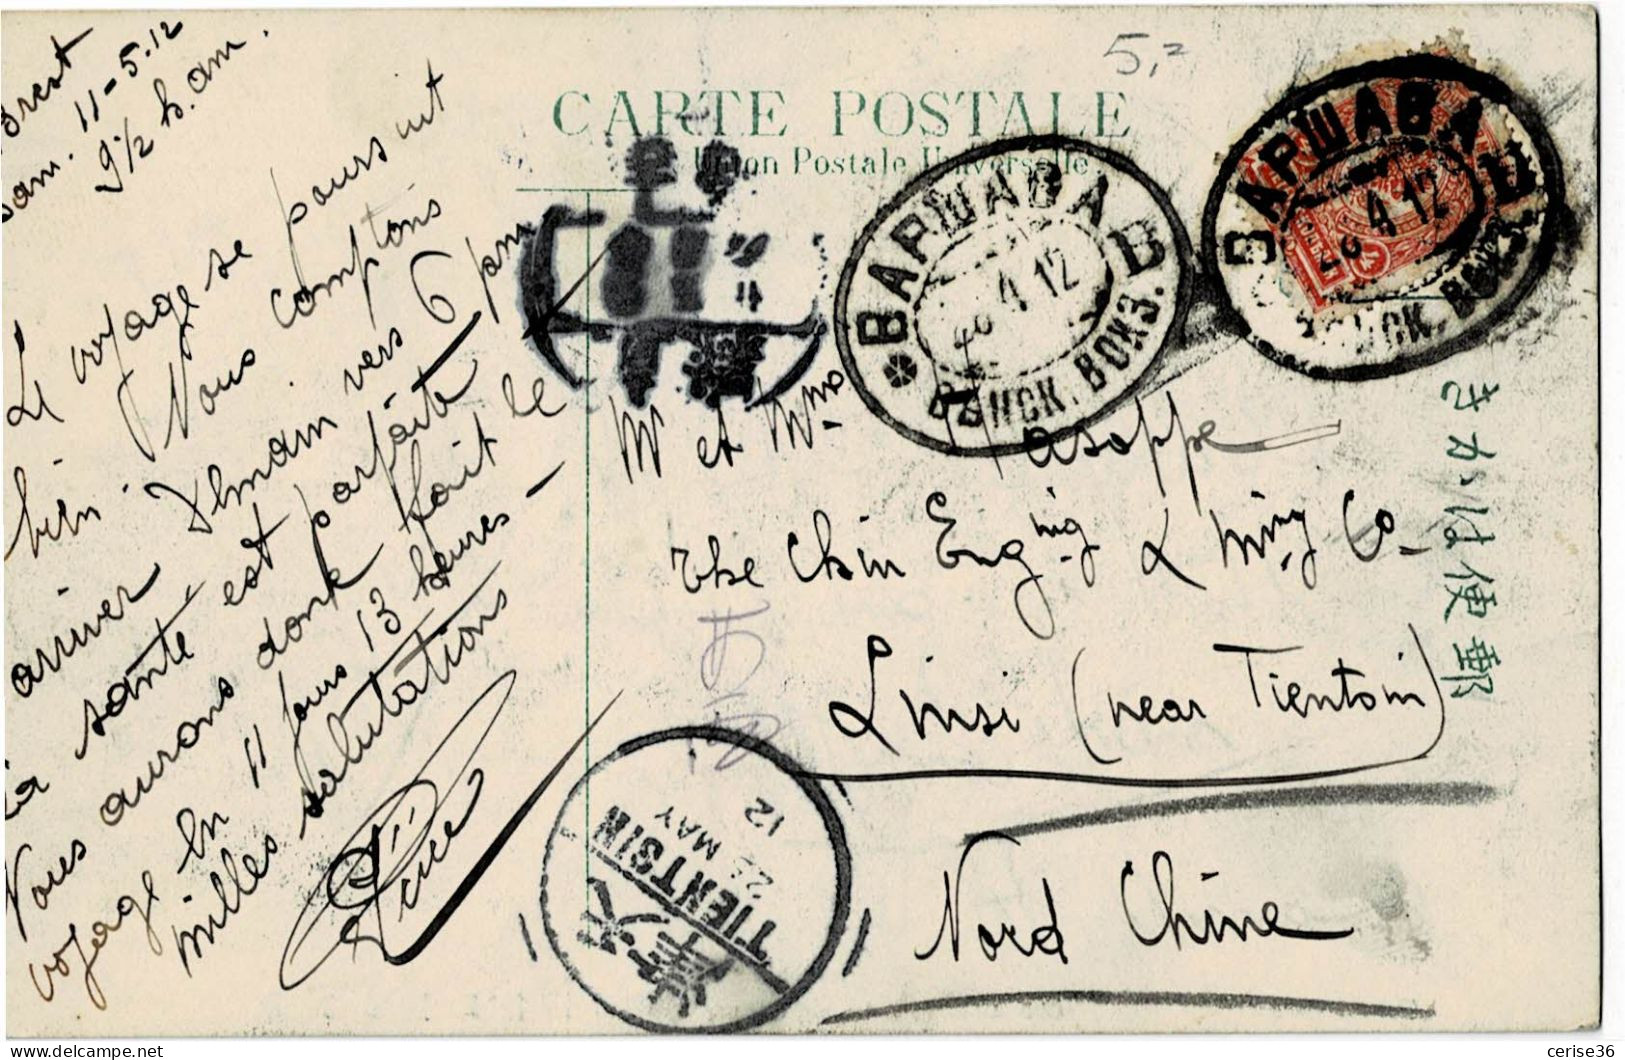 5,=
CARTE POSTALE
Union Postale Universelle
Brest
Sam. 11-5.12
9 1/2 h. am.
Le voyage se poursuit
bien. Nous comptons
arriver vers 6 pm
La santé est parfaite
Nous aurons donc fait le
voyage en 11 jours 13 heures -
milles salutations
ВАРШАВА
4 12
В
ВОКЗ.
ВАРШАВА
4 12
В
Mr et Mme Hasoppe
The Chin Enging & Ming Co-
Linsi (near Tientsin)
Nord Chine
きかは便郵
TIENTSIN
MAY
12
天津
cerise36